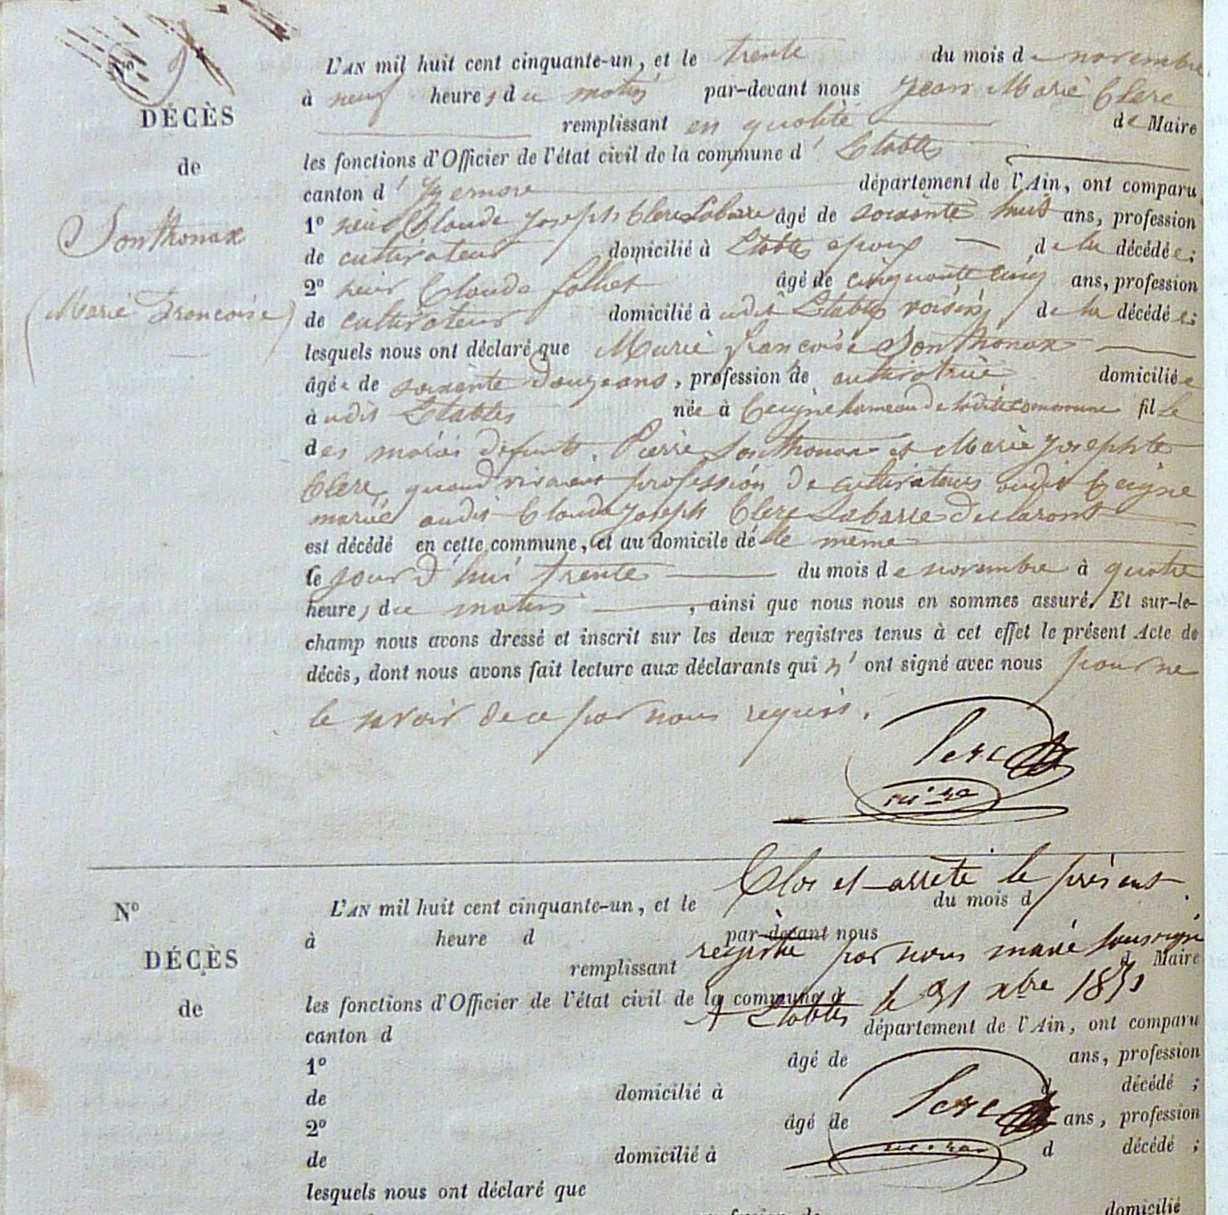 9
L'AN mil huit cent cinquante-un, et le trente du mois de novembre
à neuf heures du matin par-devant nous Jean Marie Clerc
DÉCÈS
remplissant en qualité de Maire
les fonctions d'Officier de l'état civil de la commune d' Etables
de
canton d' Izernore département de l'Ain, ont comparu
1º sieur Claude Joseph Clerc Labarre âgé de soixante huit ans, profession
Sonthonax
de cultivateur domicilié à Etables époux de la décédée;
2º sieur Claude Jollet âgé de cinquante cinq ans, profession
(Marie Francoise)
de cultivateur domicilié à udit Etables voisin de la décédée;
lesquels nous ont déclaré que Marie françoise Sonthonax
âgée de soixante douze ans, profession de cultivatrice domiciliée
à udit Etables née à Ceigne hameau de ladite commune fille
des mariés défunts Pierre Sonthonax et Marie Josephte
Clerc, quand vivaient profession de cultivateurs audit Ceigne
mariée audit Claude Joseph Clerc Labarre declarant
est décédé en cette commune, et au domicile de le même
le jour d'hui trente du mois de novembre à quatre
heures du matin, ainsi que nous nous en sommes assuré. Et sur-le-
champ nous avons dressé et inscrit sur les deux registres tenus à cet effet le présent Acte de
décès, dont nous avons fait lecture aux déclarants qui n'ont signé avec nous pour ne
le savoir de ce par nous requis.
Clerc
maire
Clos et arrêté le présent
Nº
L'AN mil huit cent cinquante-un, et le du mois d
à heure d par-devant nous
registre par nous maire soussigné
DÉCÈS
remplissant d Maire
les fonctions d'Officier de l'état civil de la commune d
A Etables le 31 xbre 1851
de
canton d département de l'Ain, ont comparu
1º âgé de ans, profession
de domicilié à d décédé ;
Clerc
2º âgé de ans, profession
maire
de domicilié à d décédé ;
lesquels nous ont déclaré que
domicilié